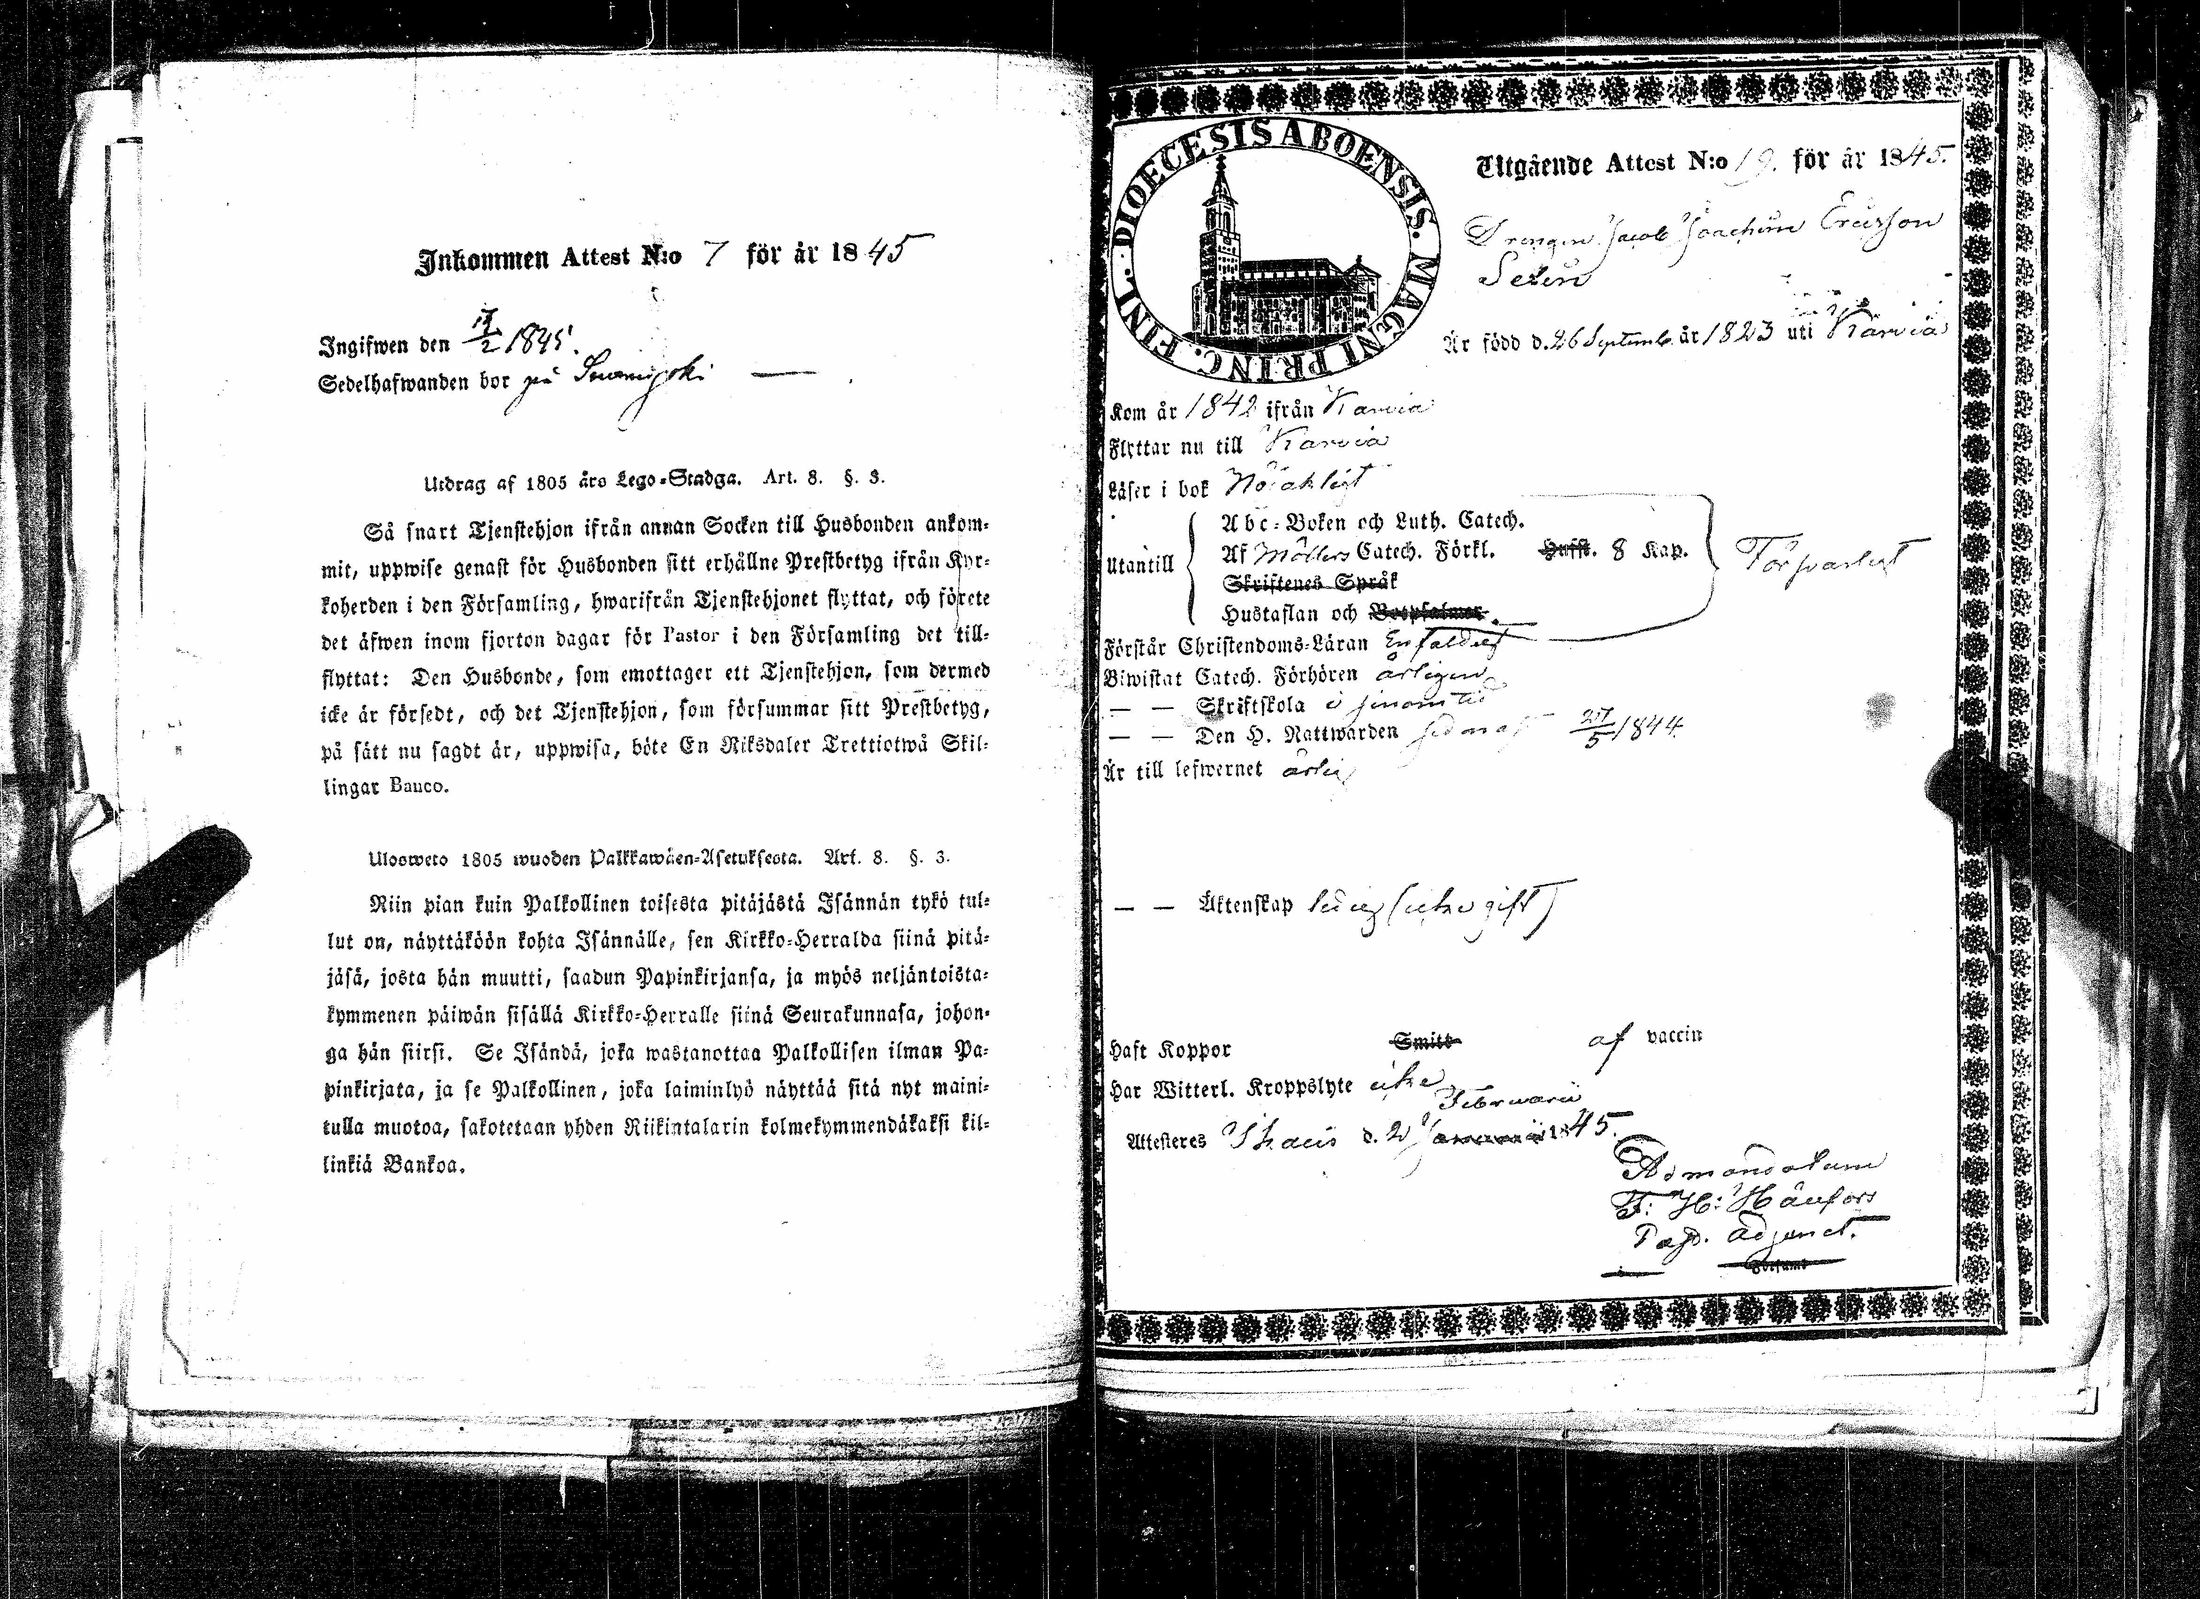 Inkommen Attest N:o 7 för år 1845
Ingifwen den 17/2 1845.
Sedelhafwanden bor på Suomijoki
Utdrag af 1805 års Lego-Stadga. Art. 8. §. 3.
Så snart Tjenstehjon ifrån annan Socken till Husbonden ankom-
mit, uppwise genast för Husbonden sitt erhållne Prestbetyg ifrån Kyr-
koherden i den Församling, hwarifrån Tjenstehjonet flyttat, och förete
det äfwen inom fjorton dagar för Pastor i den Församling det till-
flyttat: Den Husbonde, som emottager ett Tjenstehjon, som dermed
icke är försedt, och det Tjenstehjon, som försummar sitt Prestbetyg,
på sätt nu sagdt är, uppwisa, böte En Riksdaler Trettiotwå Skil-
lingar Banco.
Ulosweto 1805 wuoden Palkkawäen-Asetuksesta. Art. 8. §. 3.
Niin pian kuin Palkollinen toisesta pitäjästä Isännän tykö tul-
lut on, näyttäköön kohta Isännälle, sen Kirkko-Herralda siinä pitä-
jäsä, josta hän muutti, saadun Papinkirjansa, ja myös neljäntoista-
kymmenen päiwän sisällä Kirkko-Herralle siinä Seurakunnasa, johon-
ga hän siirsi. Se Isändä, joka wastanottaa Palkollisen ilman Pa-
pinkirjata, ja se Palkollinen, joka laiminlyö näyttää sitä nyt maini-
tulla muotoa, sakotetaan yhden Riikintalarin kolmekymmendäkaksi kil-
linkiä Bankoa.
DIOECESIS ABOENSIS. MAGNI PRINC. FINL.
Utgående Attest N:o 19. för år 1845.
Drengen Jacob Joachim Ericsson
Är född d. 26 Septemb. år 1823 uti Karvia
Kom år 1842 ifrån Karvia
Flyttar nu till Karvia
Läser i bok Nöjaktigt
Abc-Boken och Luth. Catech.
Utantill Af Möllers Catech. Förkl. Husst. 8 Kap. Försvarligt
Skriftenes Språk
Hustaflan och Botpsalmer.
Förstår Christendoms-Läran Enfaldigt
Biwistat Catech. Förhören årligen
— — Skriftskola i sinom tid
— — Den H. Nattwarden sednast 27/5 1844.
Är till lefwernet ärlig
— — Äktenskap ledig (icke gift)
Haft Koppor Smitt af vaccin
Har Witterl. Kroppslyte icke
Februarii
Attesteras Ikalis d. 2 Januarii 1845.
Ad mandatum
F: H: Hänfors
Past. Adjunct.
Församl